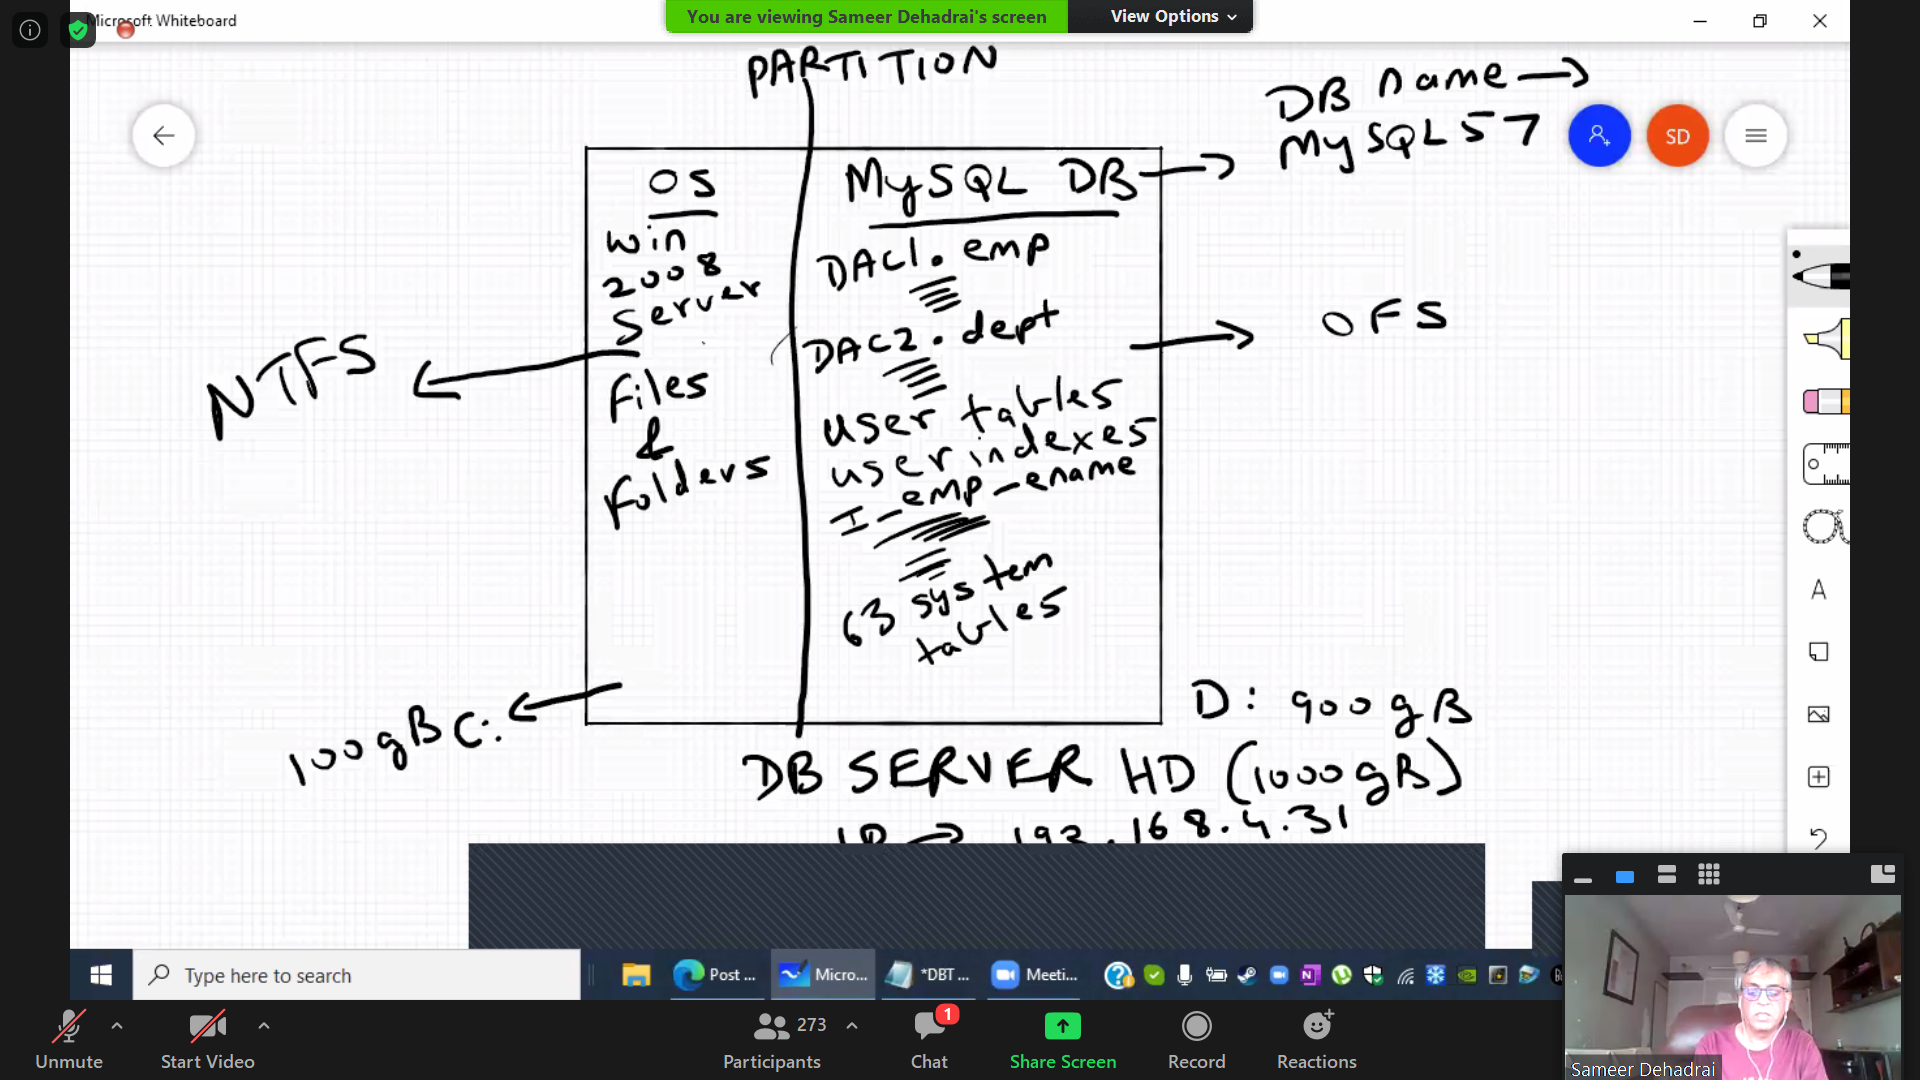 Microsoft Whiteboard
You are viewing Sameer Dehadrai's screen
View Options
PARTITION
DB name →
MySQL57
SD
OS
MySQL DB →
win
2008
Server
DAC1.emp
DAC2.dept
→ OFS
NTFS ←
Files
&
Folders
user tables
user indexes
I_emp_ename
63 system
tables
100gB C: ←
D: 900gB
DB SERVER HD (1000gB)
→ 192.168.4.31
A
Type here to search
Post ...
Micro...
*DBT ...
Meeti...
Unmute
Start Video
273
Participants
1
Chat
Share Screen
Record
Reactions
Sameer Dehadrai